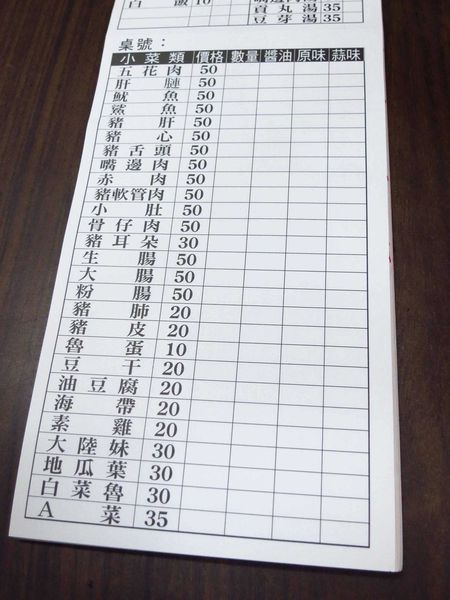 白 飯 10
貢丸湯 35
豆芽湯 35
桌號：
小菜類 價格 數量 醬油 原味 蒜味
五花肉 50
肝腱 50
魷魚 50
鯊魚 50
豬肝 50
豬心 50
豬舌頭 50
嘴邊肉 50
赤肉 50
豬軟管肉 50
小肚 50
骨仔肉 50
豬耳朵 30
生腸 50
大腸 50
粉腸 50
豬肺 20
豬皮 20
魯蛋 10
豆干 20
油豆腐 20
海帶 20
素雞 20
大陸妹 30
地瓜葉 30
白菜魯 30
A菜 35